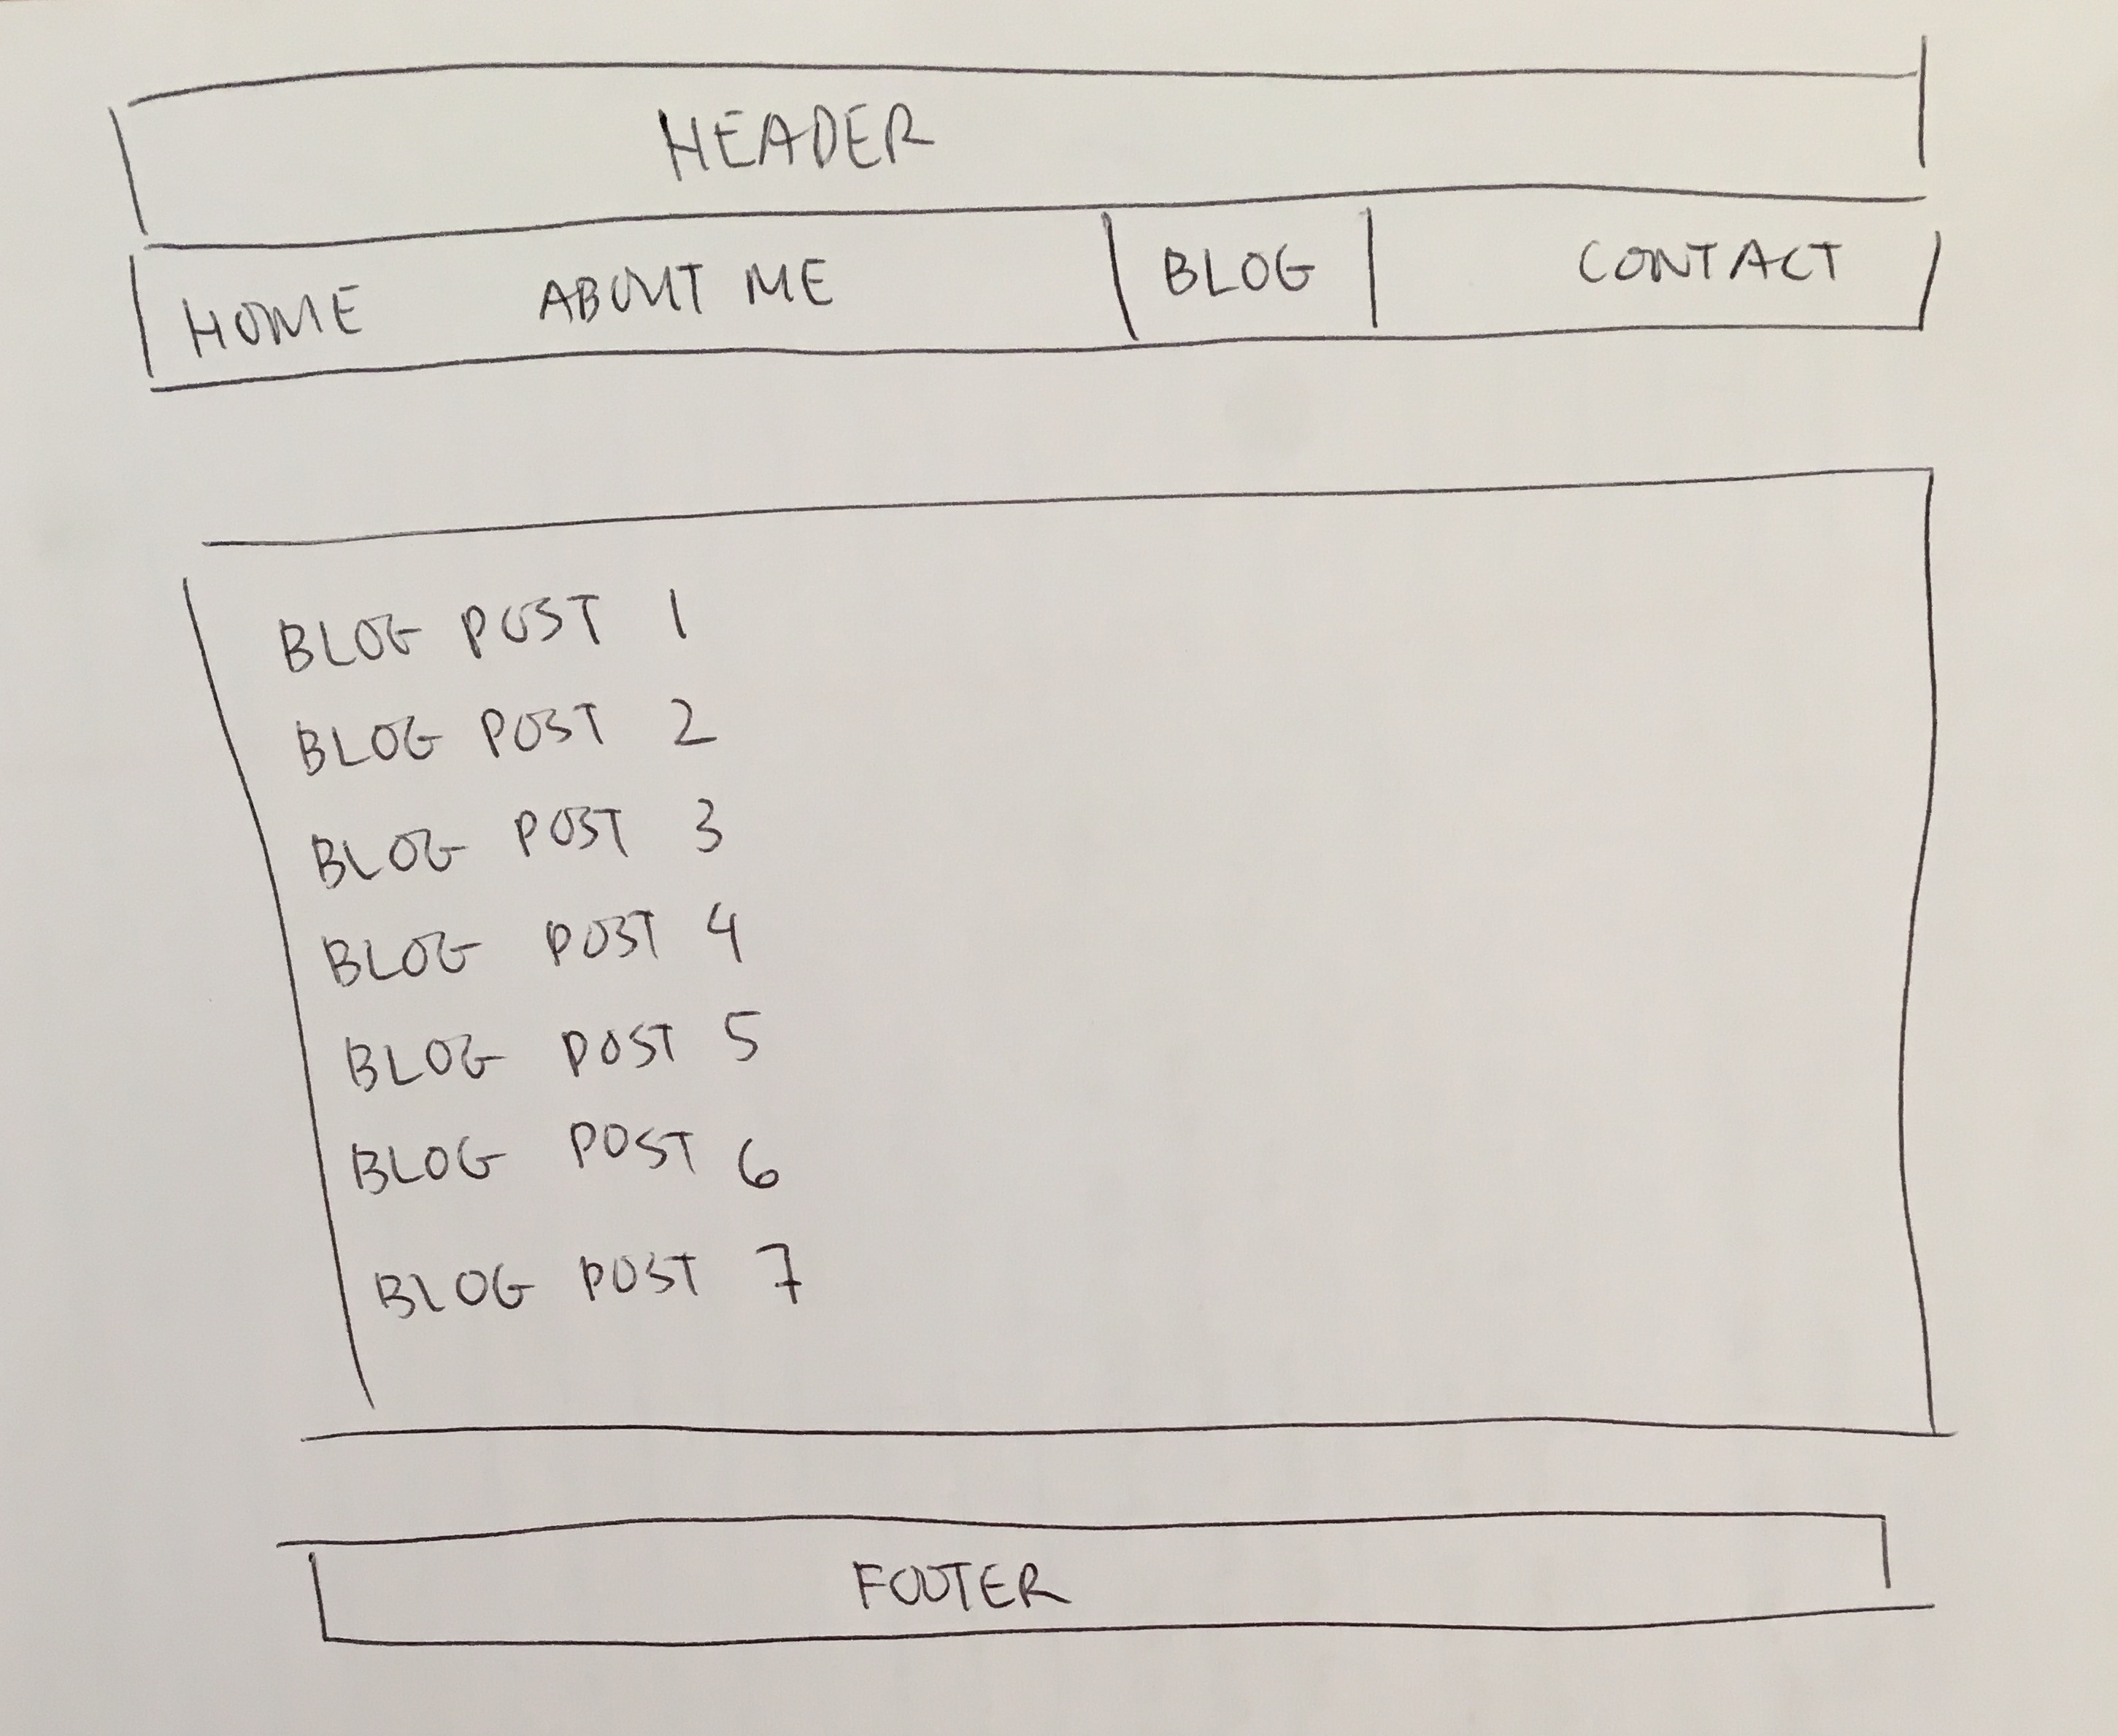 HEADER
HOME ABOUT ME BLOG CONTACT
BLOG POST 1
BLOG POST 2
BLOG POST 3
BLOG POST 4
BLOG POST 5
BLOG POST 6
BLOG POST 7
FOOTER